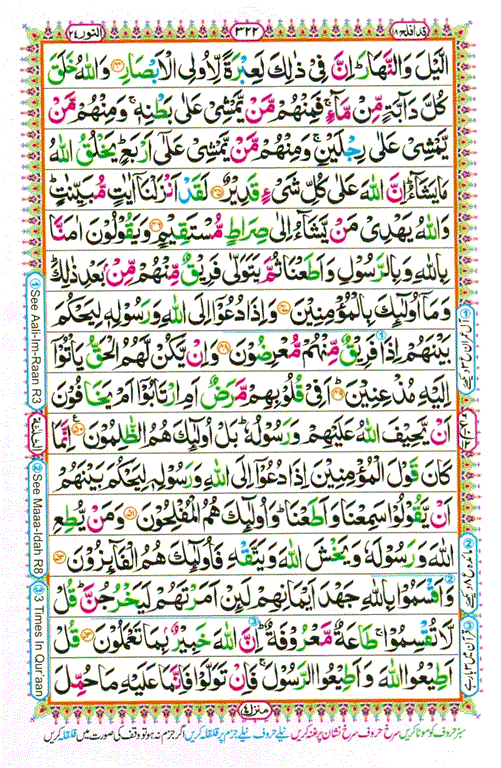 قد افلح ۱۸
۳۲۲
النور ۲۴
الَّيْلَ وَالنَّهَارَ ؕ اِنَّ فِىْ ذٰ لِكَ لَعِبْرَةً لِّاُولِى الْاَبْصَارِ ﴿۴۴﴾ وَاللّٰهُ خَلَقَ
كُلَّ دَآبَّةٍ مِّنْ مَّآءٍ ۚ فَمِنْهُمْ مَّنْ يَّمْشِىْ عَلٰى بَطْنِهٖ ۚ وَمِنْهُمْ مَّنْ
يَّمْشِىْ عَلٰى رِجْلَيْنِ ۚ وَمِنْهُمْ مَّنْ يَّمْشِىْ عَلٰٓى اَرْبَعٍ ؕ يَخْلُقُ اللّٰهُ
مَا يَشَآءُ ؕ اِنَّ اللّٰهَ عَلٰى كُلِّ شَىْءٍ قَدِيْرٌ ﴿۴۵﴾ لَقَدْ اَنْزَلْنَاۤ اٰيٰتٍ مُّبَيِّنٰتٍ ؕ
وَاللّٰهُ يَهْدِىْ مَنْ يَّشَآءُ اِلٰى صِرَاطٍ مُّسْتَقِيْمٍ ﴿۴۶﴾ وَيَقُوْلُوْنَ اٰمَنَّا
بِاللّٰهِ وَبِالرَّسُوْلِ وَاَطَعْنَا ثُمَّ يَتَوَلّٰى فَرِيْقٌ مِّنْهُمْ مِّنْۢ بَعْدِ ذٰ لِكَ ؕ
وَمَاۤ اُولٰٓئِكَ بِالْمُؤْمِنِيْنَ ﴿۴۷﴾ وَاِذَا دُعُوْۤا اِلَى اللّٰهِ وَرَسُوْلِهٖ لِيَحْكُمَ
بَيْنَهُمْ اِذَا فَرِيْقٌ مِّنْهُمْ مُّعْرِضُوْنَ ﴿۴۸﴾ وَاِنْ يَّكُنْ لَّهُمُ الْحَقُّ يَاْتُوْۤا
اِلَيْهِ مُذْعِنِيْنَ ؕ ﴿۴۹﴾ اَفِىْ قُلُوْبِهِمْ مَّرَضٌ اَمِ ارْتَابُوْۤا اَمْ يَخَافُوْنَ
اَنْ يَّحِيْفَ اللّٰهُ عَلَيْهِمْ وَرَسُوْلُهٗ ؕ بَلْ اُولٰٓئِكَ هُمُ الظّٰلِمُوْنَ ﴿۵۰﴾ اِنَّمَا
كَانَ قَوْلَ الْمُؤْمِنِيْنَ اِذَا دُعُوْۤا اِلَى اللّٰهِ وَرَسُوْلِهٖ لِيَحْكُمَ بَيْنَهُمْ
اَنْ يَّقُوْلُوْا سَمِعْنَا وَاَطَعْنَا ؕ وَاُولٰٓئِكَ هُمُ الْمُفْلِحُوْنَ ﴿۵۱﴾ وَمَنْ يُّطِعِ
اللّٰهَ وَرَسُوْلَهٗ وَيَخْشَ اللّٰهَ وَيَتَّقْهِ فَاُولٰٓئِكَ هُمُ الْفَآئِزُوْنَ ﴿۵۲﴾
وَاَقْسَمُوْا بِاللّٰهِ جَهْدَ اَيْمَانِهِمْ لَئِنْ اَمَرْتَهُمْ لَيَخْرُجُنَّ ؕ قُلْ
لَّا تُقْسِمُوْا ۚ طَاعَةٌ مَّعْرُوْفَةٌ ؕ اِنَّ اللّٰهَ خَبِيْرٌۢ بِمَا تَعْمَلُوْنَ ﴿۵۳﴾ قُلْ
اَطِيْعُوا اللّٰهَ وَاَطِيْعُوا الرَّسُوْلَ ۚ فَاِنْ تَوَلَّوْا فَاِنَّمَا عَلَيْهِ مَا حُمِّلَ
منزل ۴
سبز حروف کو موٹا کریں سرخ حروف سرخ نشان پر غنہ کریں نیلے حروف نیلے جزم پر قلقلہ کریں اگر جزم نہ ہو تو وقف کی صورت میں قلقلہ کریں
① See Aali-Im-Raan R3
② See Maaa-Idah R8
③ 3 Times In Qur'aan